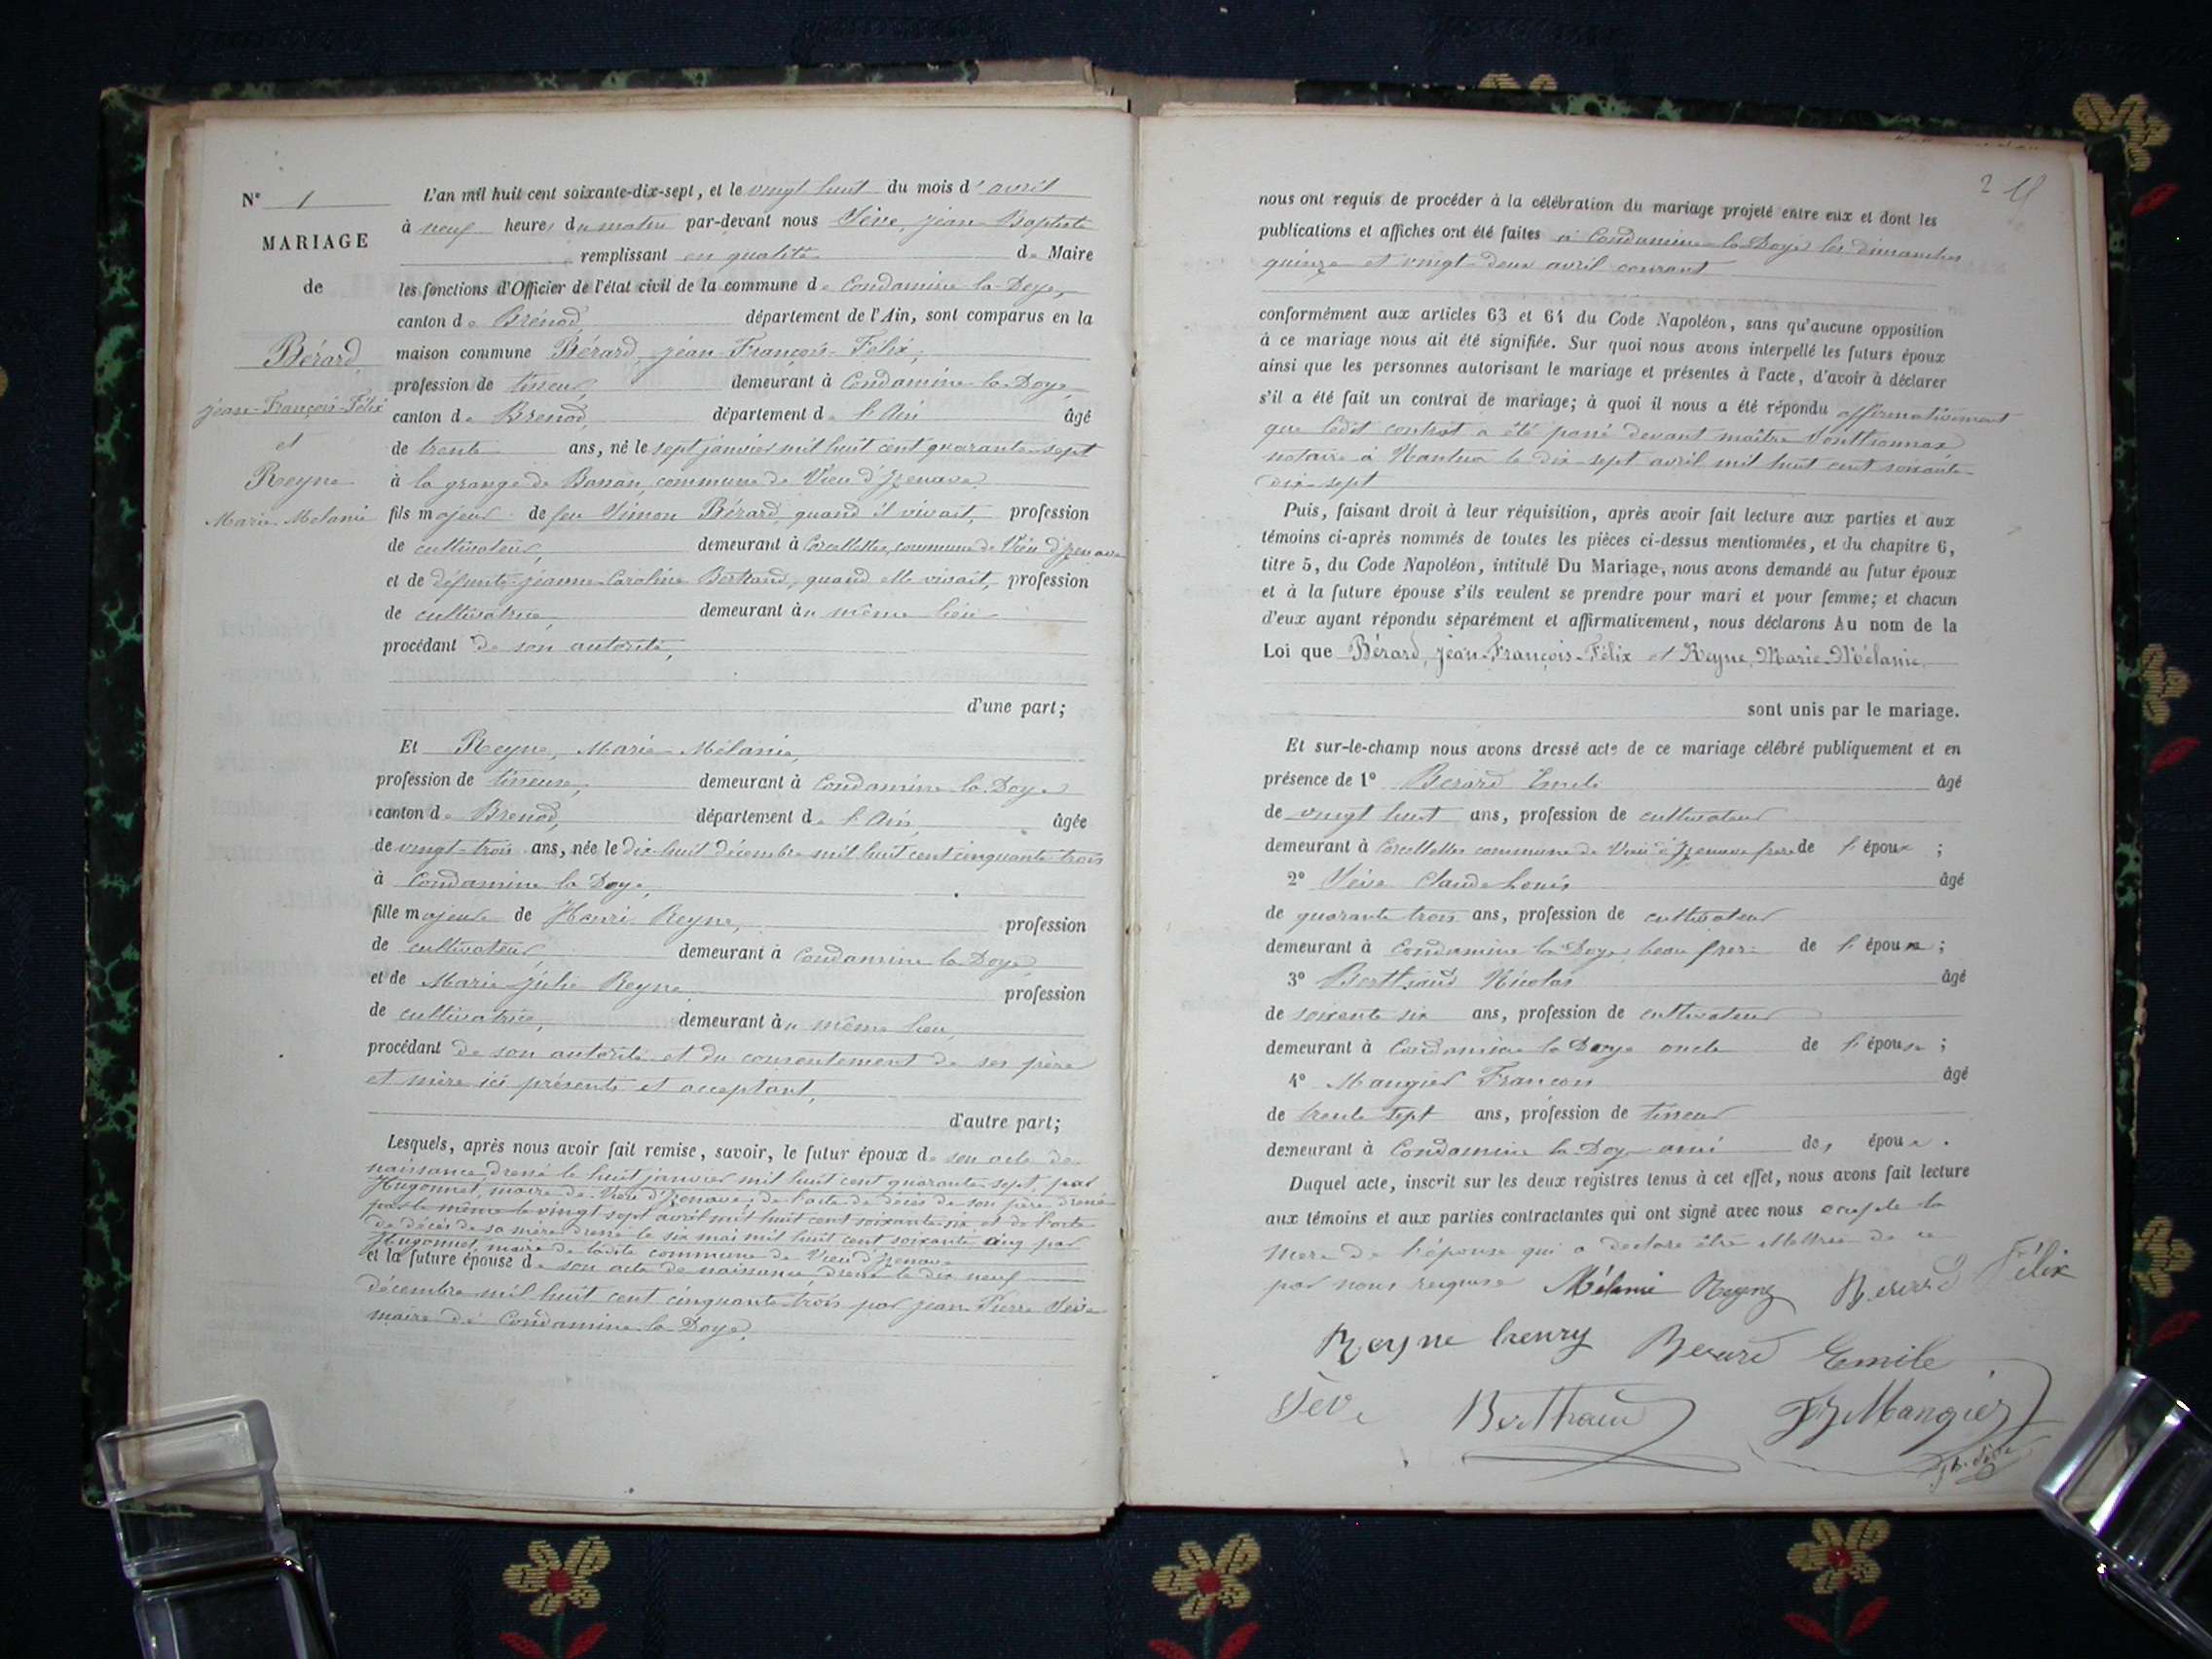 N° 1
MARIAGE
de
Bérard
jean-François-Félix
et
Reyne
Marie Mélanie
L'an mil huit cent soixante-dix-sept, et le vingt huit du mois d'avril
à neuf heures du matin par-devant nous Sève, jean-Baptiste
remplissant en qualité de Maire
les fonctions d'Officier de l'état civil de la commune de Condamine la Doye,
canton de Brénod, département de l'Ain, sont comparus en la
maison commune Bérard, jean-François-Félix,
profession de tisseur, demeurant à Condamine la Doye,
canton de Brenod, département de l'Ain âgé
de trente ans, né le sept janvier mil huit cent quarante-sept
à la grange de Bossan, commune de Vieu d'Izenave,
fils majeur de feu Simon Bérard, quand il vivait, profession
de cultivateur, demeurant à Corcellettes, commune de Vieu d'Izenave
et de défunte jeanne-Caroline Bertrand, quand elle vivait, profession
de cultivatrice, demeurant au même lieu
procédant de son autorité,
d'une part;
Et Reyne, Marie-Mélanie,
profession de tisseuse, demeurant à Condamine la Doye
canton de Brenod, département de l'Ain, âgée
de vingt-trois ans, née le dix-huit décembre mil huit cent cinquante trois
à Condamine la Doye,
fille majeure de Henri Reyne, profession
de cultivateur, demeurant à Condamine la Doye
et de Marie julie Reyne profession
de cultivatrice, demeurant au même lieu,
procédant de son autorité et du consentement de ses père
et mère ici présents et acceptant,
d'autre part;
Lesquels, après nous avoir fait remise, savoir, le futur époux de son acte de
naissance, dressé le huit janvier mil huit cent quarante-sept, par
Hugonnet, maire de Vieu d'Izenave; de l'acte de décès de son père dressé
par le même le vingt sept avril mil huit cent soixante six et de l'acte
de décès de sa mère dressé le six mai mil huit cent soixante cinq par
Hugonnet, maire de ladite commune de Vieu d'Izenave
et la future épouse de son acte de naissance, dressé le dix neuf
décembre mil huit cent cinquante trois par jean Pierre Sève
maire de Condamine la Doye.
2
nous ont requis de procéder à la célébration du mariage projeté entre eux et dont les
publications et affiches ont été faites à Condamine la Doye les dimanches
quinze et vingt-deux avril courant
conformément aux articles 63 et 64 du Code Napoléon, sans qu'aucune opposition
à ce mariage nous ait été signifiée. Sur quoi nous avons interpellé les futurs époux
ainsi que les personnes autorisant le mariage et présentes à l'acte, d'avoir à déclarer
s'il a été fait un contrat de mariage; à quoi il nous a été répondu affirmativement
que ledit contrat a été passé devant maître
notaire à Nantua le dix-sept avril mil huit cent soixante
dix-sept
Puis, faisant droit à leur réquisition, après avoir fait lecture aux parties et aux
témoins ci-après nommés de toutes les pièces ci-dessus mentionnées, et du chapitre 6,
titre 5, du Code Napoléon, intitulé Du Mariage, nous avons demandé au futur époux
et à la future épouse s'ils veulent se prendre pour mari et pour femme; et chacun
d'eux ayant répondu séparément et affirmativement, nous déclarons Au nom de la
Loi que Bérard, jean-François-Félix et Reyne, Marie-Mélanie,
sont unis par le mariage.
Et sur-le-champ nous avons dressé acte de ce mariage célébré publiquement et en
présence de 1° Bérard Emile âgé
de vingt huit ans, profession de cultivateur
demeurant à Corcellettes commune de Vieu d'Izenave frère de l'époux ;
2° Sève Claude Louis âgé
de quarante trois ans, profession de cultivateur
demeurant à Condamine la Doye, beau frère de l'épouse ;
3° Berthaud Nicolas âgé
de soixante six ans, profession de cultivateur
demeurant à Condamine la Doye oncle de l'épouse ;
4° Mangier François âgé
de trente sept ans, profession de tisseur
demeurant à Condamine la Doye ami de, époux.
Duquel acte, inscrit sur les deux registres tenus à cet effet, nous avons fait lecture
aux témoins et aux parties contractantes qui ont signé avec nous excepté la
mère de l'épouse qui a déclaré être illettrée de ce
par nous requise Mélanie Reyne Berard Félix
Reyne henry Berard Emile
Sève Berthaud Fs Mangier